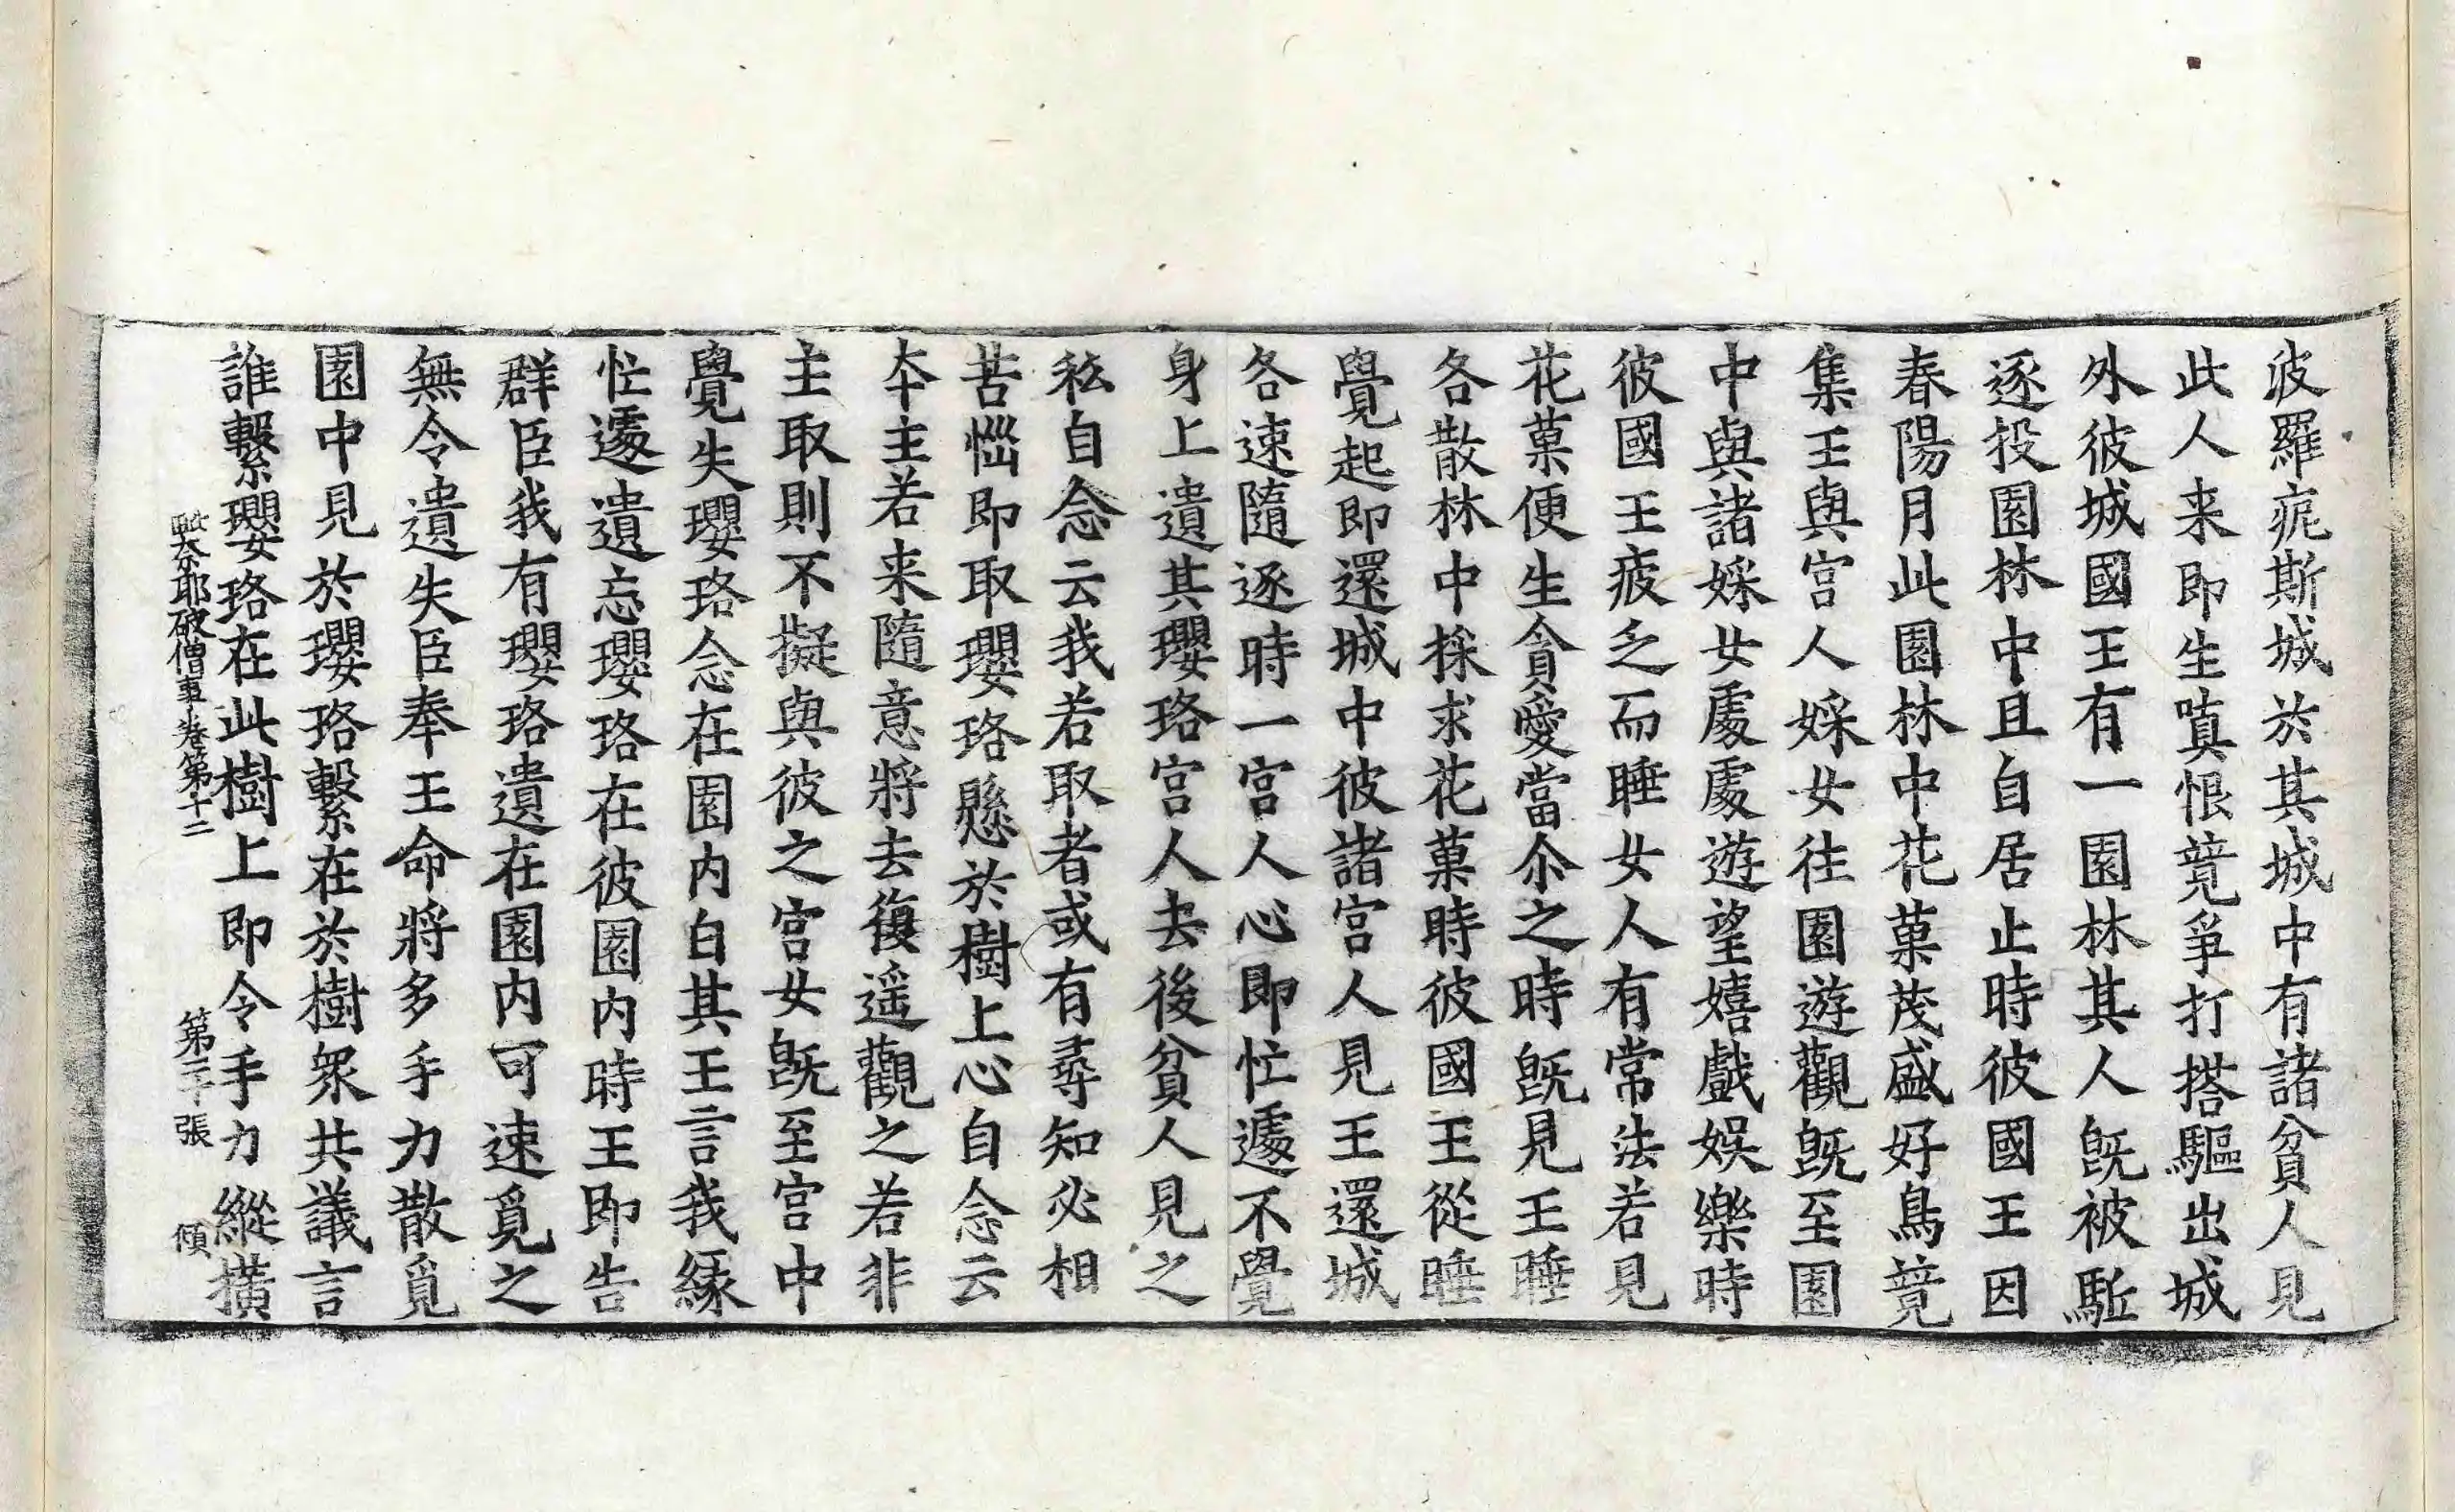 波羅痆斯城於其城中有諸貧人見
此人来即生嗔恨竟爭打搭驅出城
外彼城國王有一園林其人旣被駈
逐投園林中且自居止時彼國王因
春陽月此園林中花菓茂盛好鳥竟
集王與宫人婇女往園遊觀旣至園
中與諸婇女處處遊望嬉戲娱樂時
彼國王疲乏而睡女人有常法若見
花菓便生貪愛當尒之時旣見王睡
各散林中採求花菓時彼國王從睡
覺起即還城中彼諸宫人見王還城
各速隨逐時一宫人心即忙遽不覺
身上遺其瓔珞宫人去後貧人見之
私自念云我若取者或有尋知必相
苦惱即取瓔珞懸於樹上心自念云
本主若来隨意將去復遥觀之若非
主取則不擬與彼之宫女旣至宫中
覺失瓔珞念在園内白其王言我緣
忙遽遺忘瓔珞在彼園内時王即告
群臣我有瓔珞遺在園内可速覓之
無令遺失臣奉王命將多手力散覓
園中見於瓔珞繫在於樹衆共議言
誰繫瓔珞在此樹上即令手力縱撗
毗奈耶破僧事卷第十二 第二十張 傾